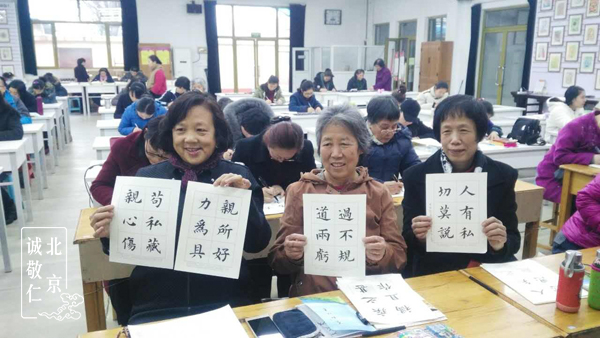 苟私藏
親心傷
親所好
力爲具
過不規
道兩虧
人有私
切莫說
北京
诚敬仁